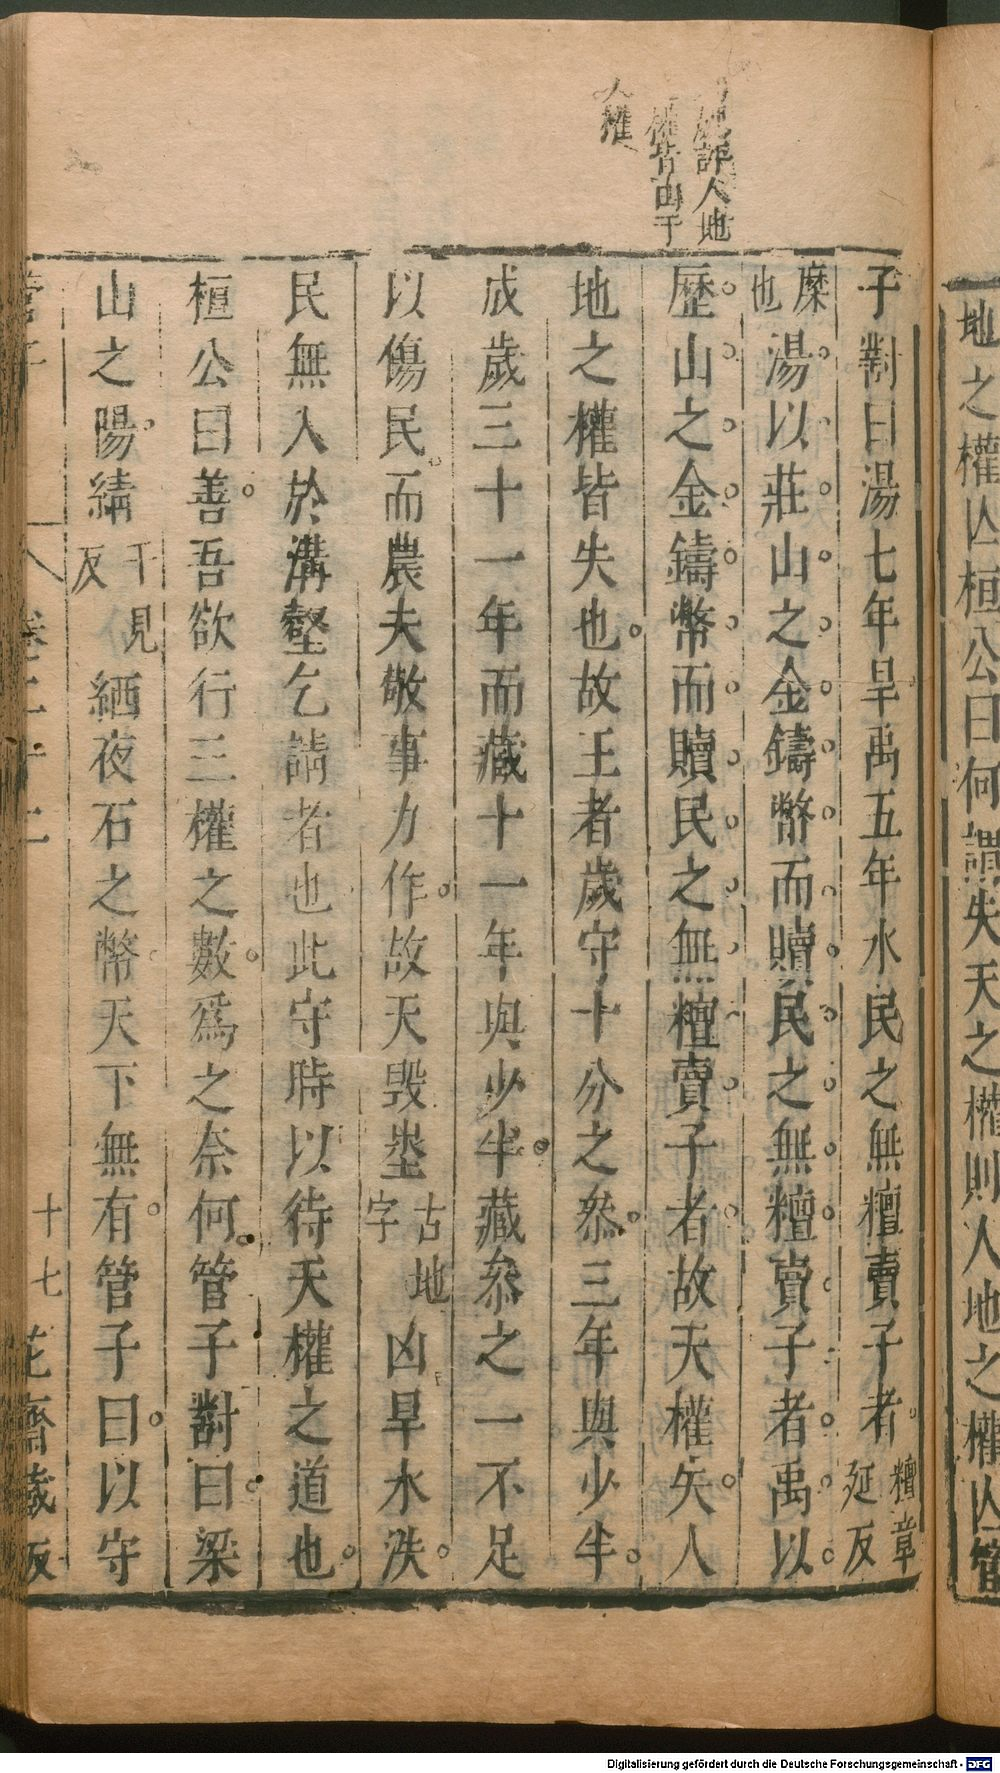 地之權亡桓公曰何謂失天之權則人地之權亡管
評人地
權皆由于
權
子對曰湯七年旱禹五年水民之無𥼷賣子者𥼷章延反
糜也湯以莊山之金鑄幣而贖民之無𥼷賣子者禹以
歷山之金鑄幣而贖民之無𥼷賣子者故天權失人
地之權皆失也故王者歲守十分之叅三年與少半
成歲三十一年而藏十一年與少半藏叅之一不足
以傷民而農夫敬事力作故天毀埊古地字凶旱水泆
民無入於溝壑乞請者也此守時以待天權之道也
桓公曰善吾欲行三權之數爲之奈何管子對曰梁
山之陽綪千見反絤夜石之幣天下無有管子曰以守
管子 卷二十二 十七 花齋藏板
Digitalisierung gefördert durch die Deutsche Forschungsgemeinschaft - DFG